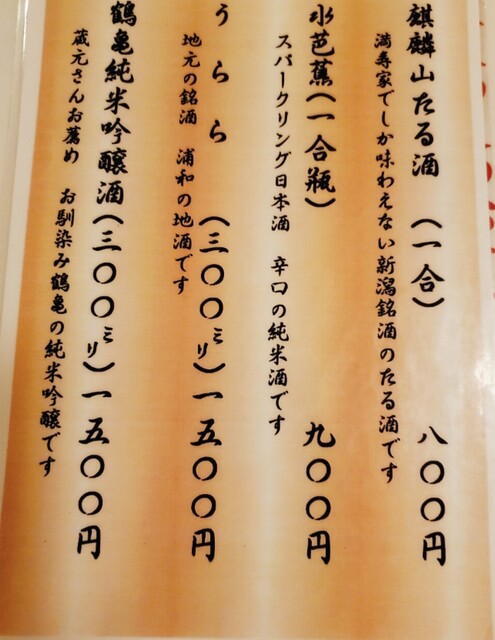 麒麟山たる酒 (一合) 八〇〇円
満寿家でしか味わえない新潟銘酒のたる酒です
水芭蕉(一合瓶) 九〇〇円
スパークリング日本酒 辛口の純米酒です
うらら (三〇〇ミリ) 一五〇〇円
地元の銘酒 浦和の地酒です
鶴亀純米吟醸酒(三〇〇ミリ) 一五〇〇円
蔵元さんお薦め お馴染み鶴亀の純米吟醸です